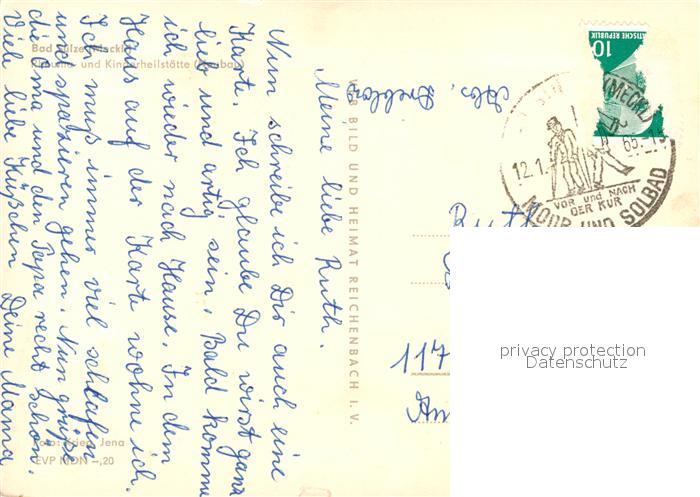 Bad Sülze (Meckl.)
Rheuma- und Kinderheilstätte (Neubau)
Meine liebe Ruth.
Nun schreibe ich Dir auch eine
Karte. Ich glaube Du wirst ganz
lieb und artig sein. Bald komme
ich wieder nach Hause. In dem
Haus auf der Karte wohne ich.
Ich muß immer viel schlafen
und spazieren gehen. Nun grüße
die Oma und den Papa recht schön.
Viele liebe Küßchen Deine Mama
Foto: Krieg, Jena
EVP MDN -,20
VEB BILD UND HEIMAT REICHENBACH I. V.
Abs.
10
12.1.
65.-15
VOR und NACH
DER KUR
MOOR UND SOLBAD
Ruth
117
privacy protection
Datenschutz